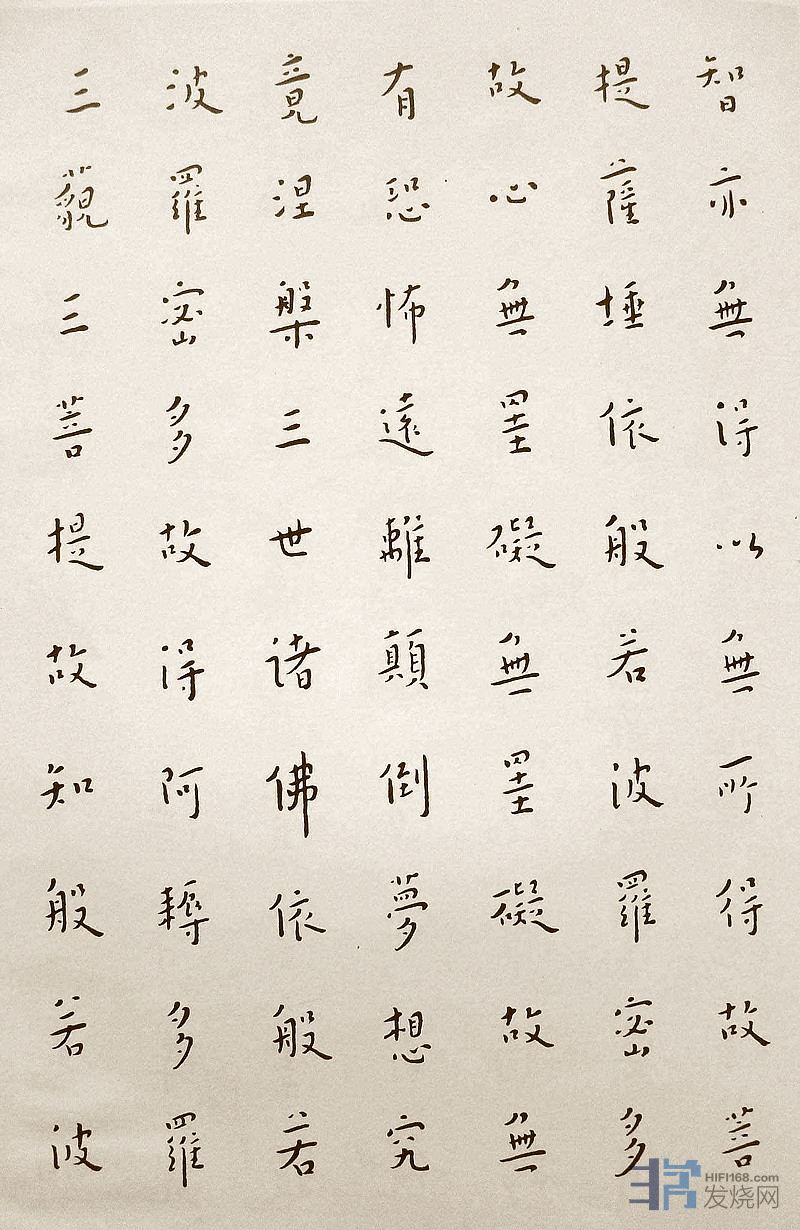 智亦無得以無所得故菩
提薩埵依般若波羅密多
故心無罣礙無罣礙故無
有恐怖遠離顛倒夢想究
竟涅槃三世諸佛依般若
波羅密多故得阿耨多羅
三藐三菩提故知般若波
HIFI168.com
发烧网